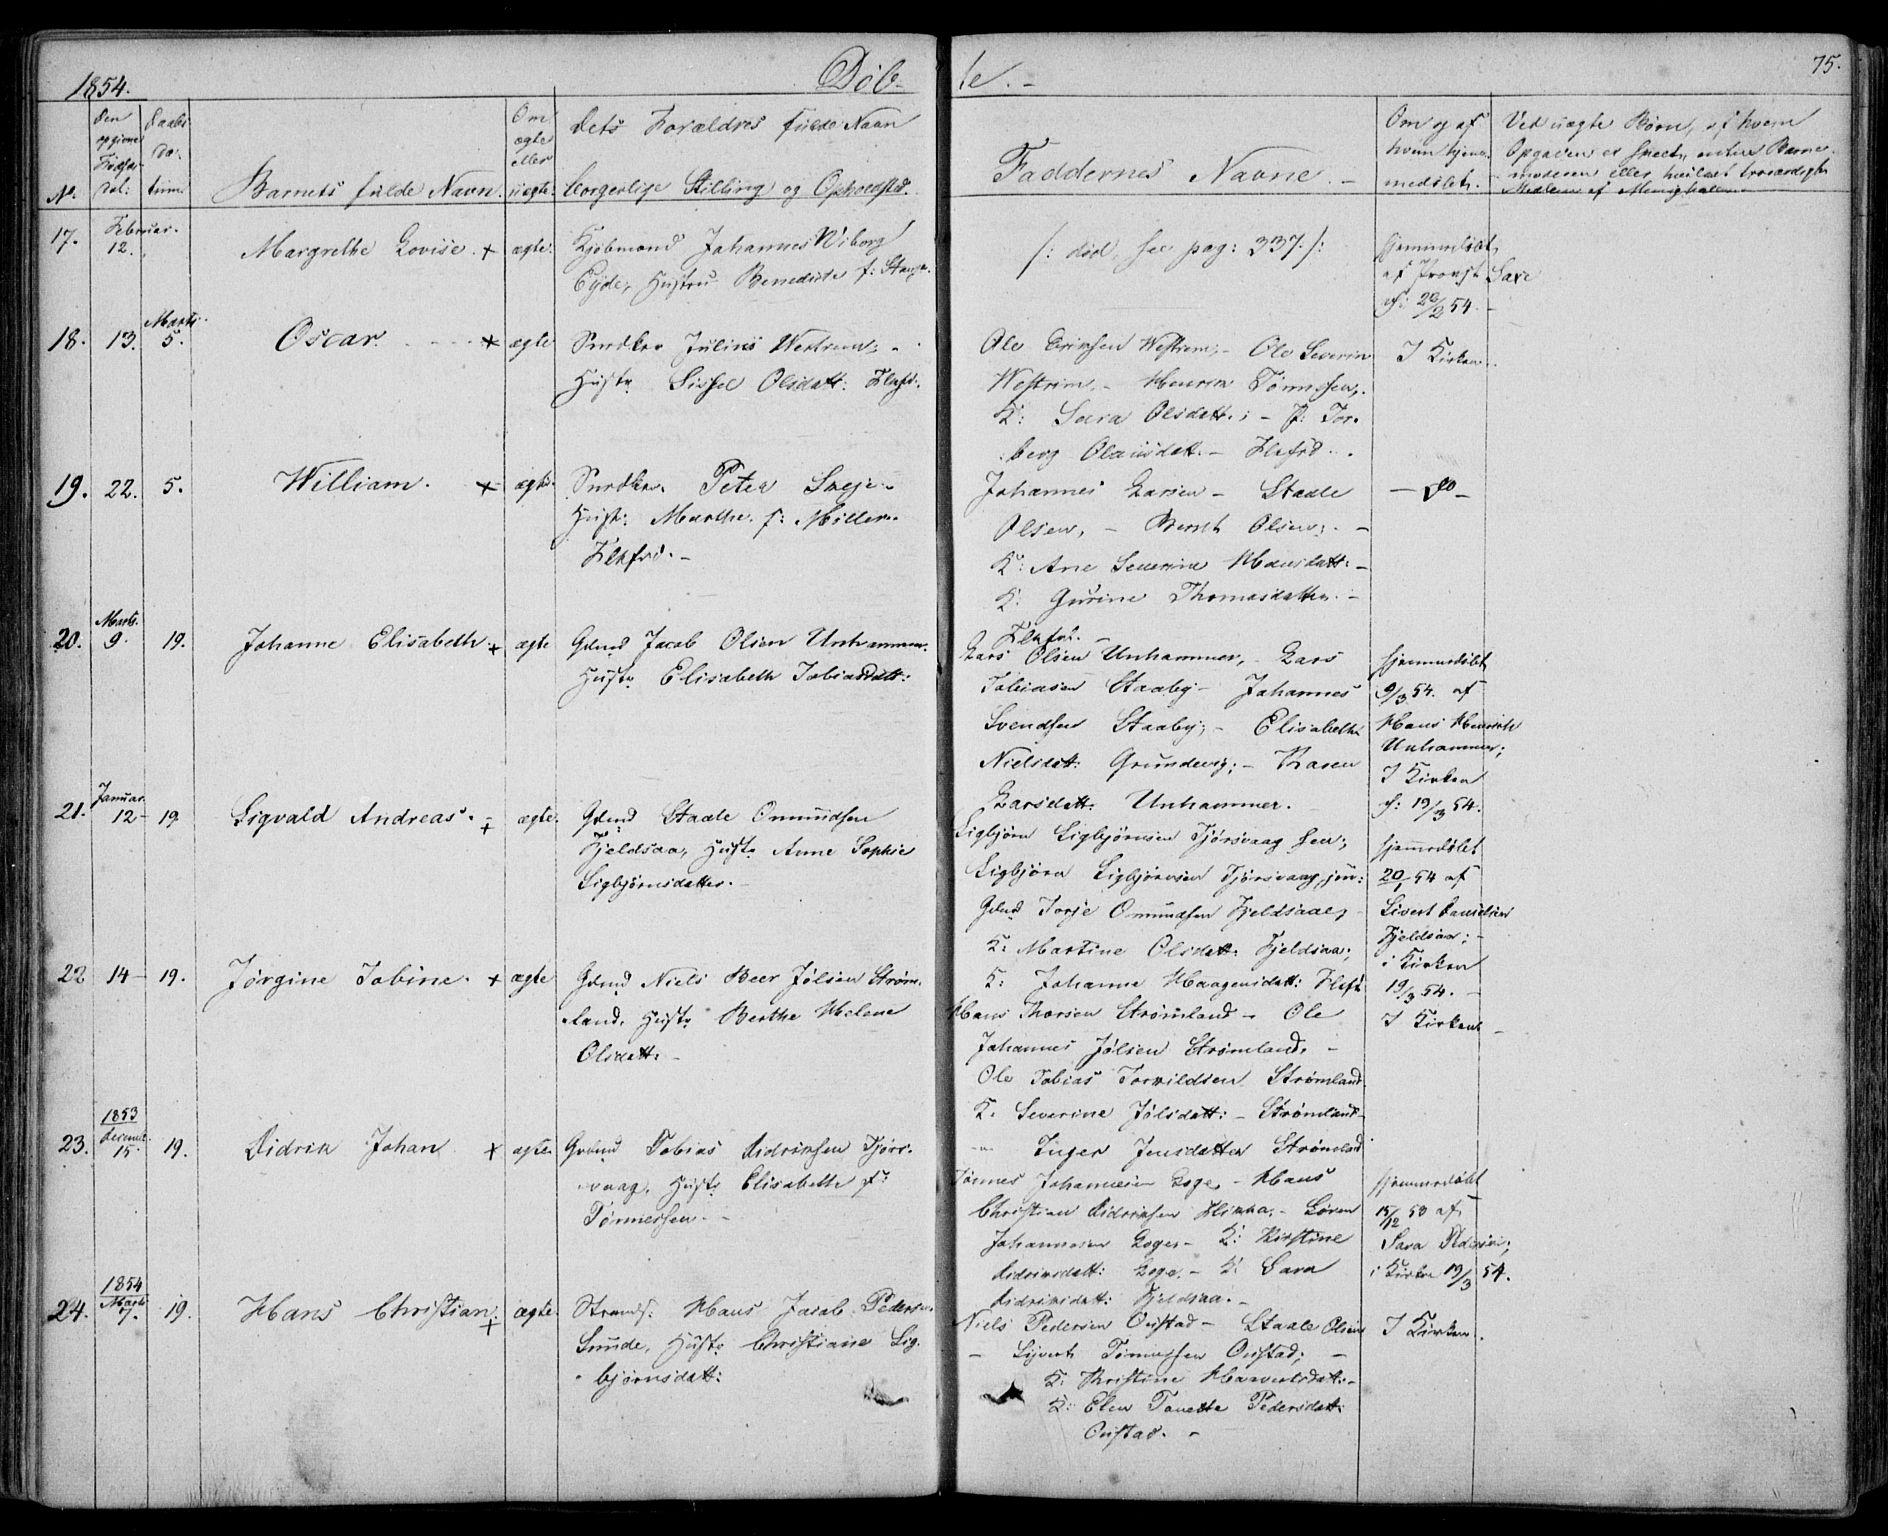 1854.
Døb-
te. -
75.
Den
opgivne
Fødsels-
Dat:
Daabs
Da-
tum
No
Barnets fulde Navn.
Om
ægte
eller
uægte.
Dets Forældres fulde Navn
borgerlige Stilling og Opholdsted.
Faddernes Navne. -
Om og af
hvem hjem-
medøbt.
Ved uægte Børn, af hvem
Opgaven er skeet, enten Barne-
moderen eller hvilket troværdigt
Medlem af Menigheden.
17.
Februar.
12.
Margrethe Lovise. +
ægte.
Kjøbmand Johannes Wiborg
Eyde, Hustru Benedicte f:
/: død, see pag: 337 :/
hjemmedøbt
af Provst Saxe
d: 20/2 54. -
18. 13.
Marts
5.
Oscar. +
ægte
Snedker Julius Westrem, -
Hustr Sissel Olsdatt: Flkfd.
Ole Eriksen Westrem, - Ole Severin
Westrem, - Henrik Tønnesen,
K: Sara Olsdatt.; - P: Tor-
berg Olausdatt. - Flkfd.
I Kirken.
19. 22. 5.
William. +
ægte.
Snedker Peter Skeje -
Hust: Marthe f: Møller.
Flkfrd. -
Johannes Larsen - Staale
Olsen, - Bernt Olsen; -
K: Ane Severine Hansdatt: -
K: Gurine Thomasdatter. -
Flkfrd. -
- do -
20.
Marts
9. 19.
Johanne Elisabeth. +
ægte
Gdmd Jacob Olsen Unhammer.
Hustr Elisabeth Tobiasdatt:
Lars Olsen Unhammer, Lars
Tobiasen Staaby - Johannes
Svendsen Staaby; - Elisabeth
Nielsdatt: Grundevig; - Karen
Larsdatt: Unhammer.
hjemmedøbt
9/3 54. af
Hans Henrich
Unhammer;
I Kirken
d: 19/3 54.
21.
Januar
12 - 19
Sigvald Andreas. - +
ægte.
Gdmd Staale Omundsen
Fjeldsaa, Hustr Anne Sophie
Sigbjørnsdatter. -
Sigbjørn Sigbjørnsen Tjørsvaag sen;
Sigbjørn Sigbjørnsen Tjørsvaag jun:
Gdmd Torje Omundsen Fjeldsaae,
K: Martine Olsdatt: Fjeldsaa;
K: Johanne Haagensdatt: Flkf
hjemmedøbt
20/1 54 af
Sivert Danielsen
Fjeldsaa; -
i Kirken
19/3 54. -
22 14 - 19.
Jørgine Tobine. +
ægte
Gdmd Niels Beer Jølsen Strøm-
land, Hustr Berthe Helene
Olsdatt: -
Hans Thorsen Strømland - Ole
Johannes Jølsen Strømland. -
Ole Tobias Torkildsen Strømland
K. Severine Jølsdatt: - Strømland
-"- Inger Jensdatter Strømland
I Kirken -
23.
1853
Decemb.
15. 19.
Didrik Johan +
ægte.
Gdmd Tobias Didriksen Tjørs-
vaag, Hustr Elisabeth f:
Tønnessen. -
Tønnes Johannesen Loge - Hans
Christian Didriksen Flikka, - Søren
Johannesen Loge - K: Kirstine
Didriksdatt: Loge, - K: Sara
Didriksdatt: Fjeldsaa. -
hjemmedøbt
15/12 53 af
Sara Didriksd;
i Kirken 19/3 54.
24.
1854
Marts
7. 19.
Hans Christian. +
ægte.
Strands: Hans Jacob Pedersen
Sunde, Hustr Christiane Sig-
bjørnsdatt:
Niels Pedersen Oustad - Staale Olsen
- Sivert Tønnessen Oustad; -
K: Kristine Haavardsdatt: -
K: Elen Tonette Pedersdatt:
Oustad. -
I Kirken.